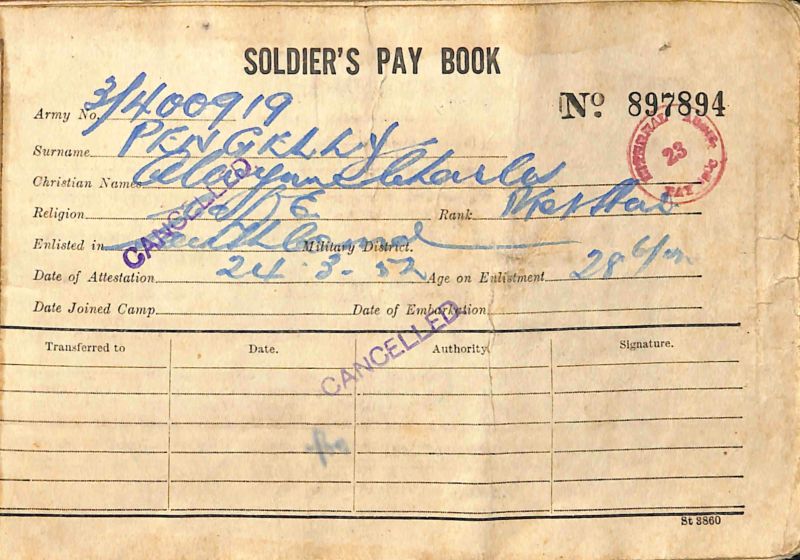 SOLDIER'S PAY BOOK
Army No. 3/400919
Nº 897894
Surname PENGELLY
Christian Names Charles
Religion C of E Rank
Enlisted in Military District.
Date of Attestation 24-3-52 Age on Enlistment 28 6/12
Date Joined Camp Date of Embarkation
CANCELLED
CANCELLED
23
PAY
Transferred to Date. Authority Signature.
St 3860